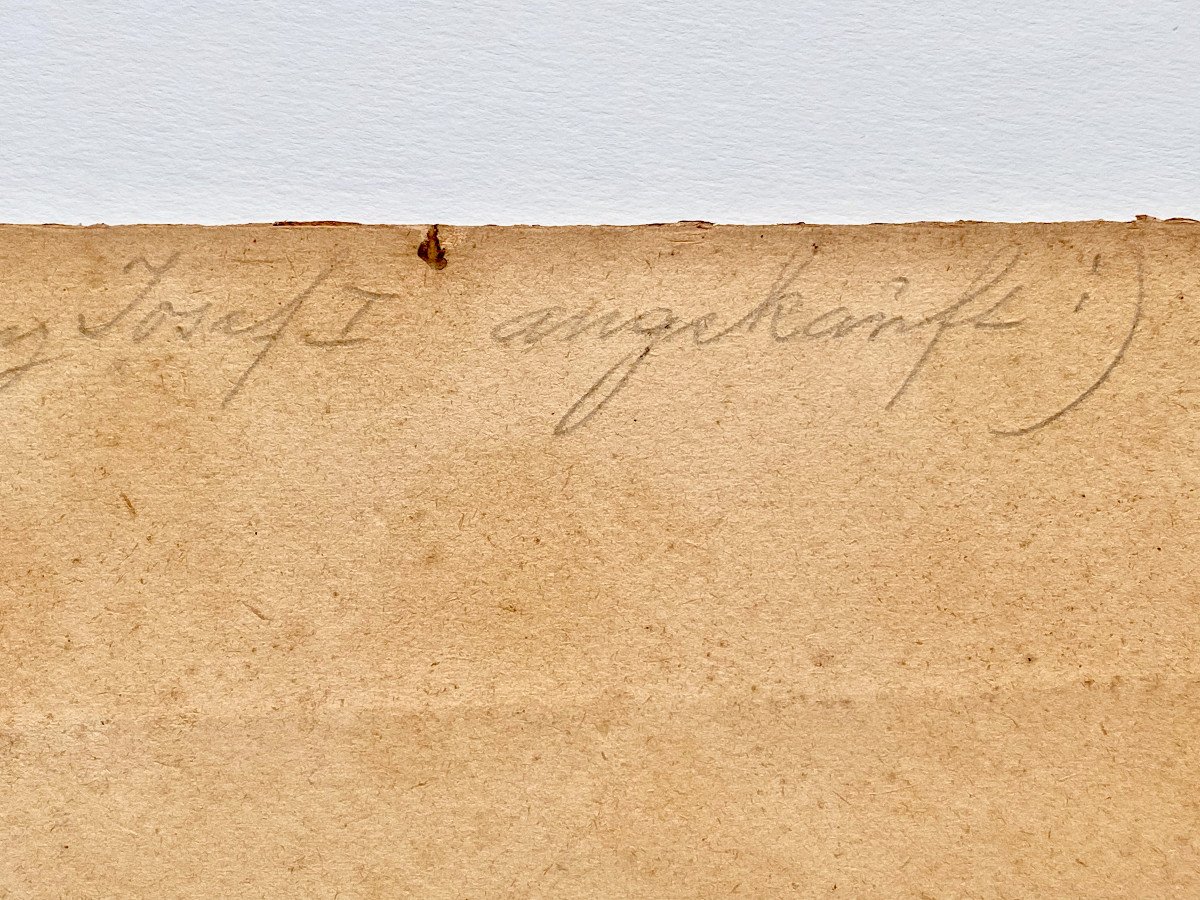 Josef I angekauft!)